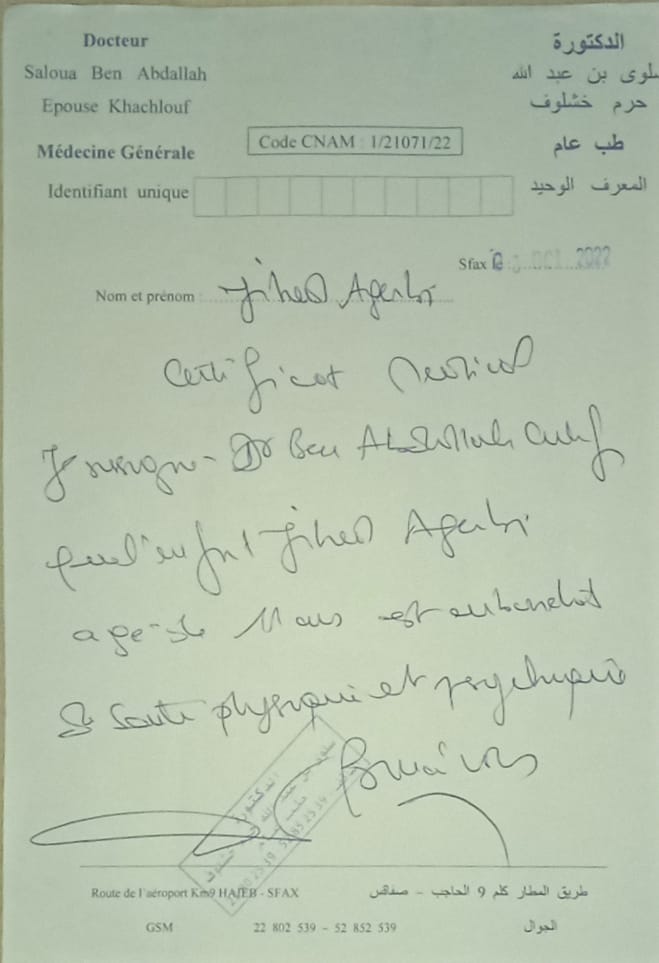 Docteur
Saloua Ben Abdallah
Epouse Khachlouf
Médecine Générale
الدكتورة
سلوى بن عبد الله
حرم خشلوف
طب عام
Code CNAM : 1/21071/22
Identifiant unique
المعرف الوحيد
Sfax 2022
Nom et prénom : Jihed Agerbi
Certificat Medical
Je soussigné Dr Ben Abdallah certif
que l'enfant Jihed Agerbi
agé de 11 ans est en bon état
de santé physique et psychique
Route de l'aéroport Km9 HAJEB - SFAX
طريق المطار كلم 9 الحاجب - صفاقس
GSM 22 802 539 - 52 852 539 الجوال